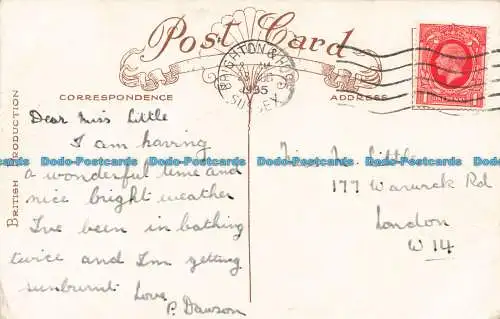 Post Card
BRIGHTON & HOVE
1935
SUSSEX
CORRESPONDENCE
ADDRESS
BRITISH PRODUCTION
Dear Miss Little
I am having
a wonderful time and
nice bright weather
I've been in bathing
twice and I'm getting
sunburnt. Love
P. Dawson
Little
177 Warwick Rd
London
W 14
Dodo-Postcards Dodo-Postcards Dodo-Postcards Dodo-Postcards
Dodo-Postcards Dodo-Postcards Dodo-Postcards Dodo-Postcards